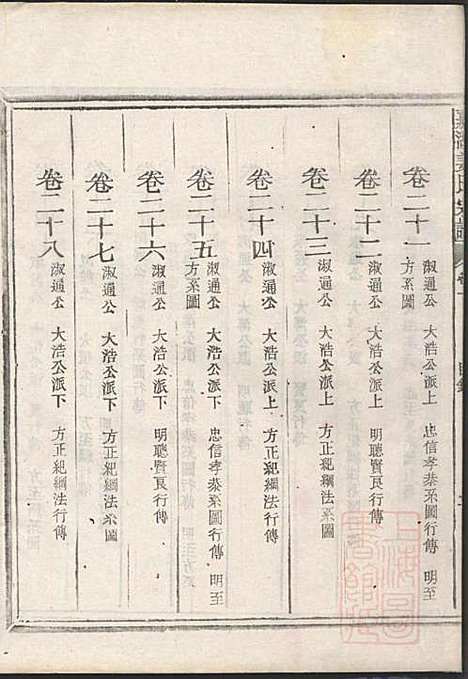 卷二十一
淑通公 大浩公派上 忠信孝恭系圖行傳 明至
方系圖
卷二十二
淑通公 大浩公派上 明聰賢良行傳
卷二十三
淑通公 大浩公派上 方正紀綱法系圖
卷二十四
淑通公 大浩公派上 方正紀綱法行傳
卷二十五
淑通公 大浩公派下 忠信孝恭系圖行傳 明至
方系圖
卷二十六
淑通公 大浩公派下 明聰賢良行傳
卷二十七
淑通公 大浩公派下 方正紀綱法系圖
卷二十八
淑通公 大浩公派下 方正紀綱法行傳